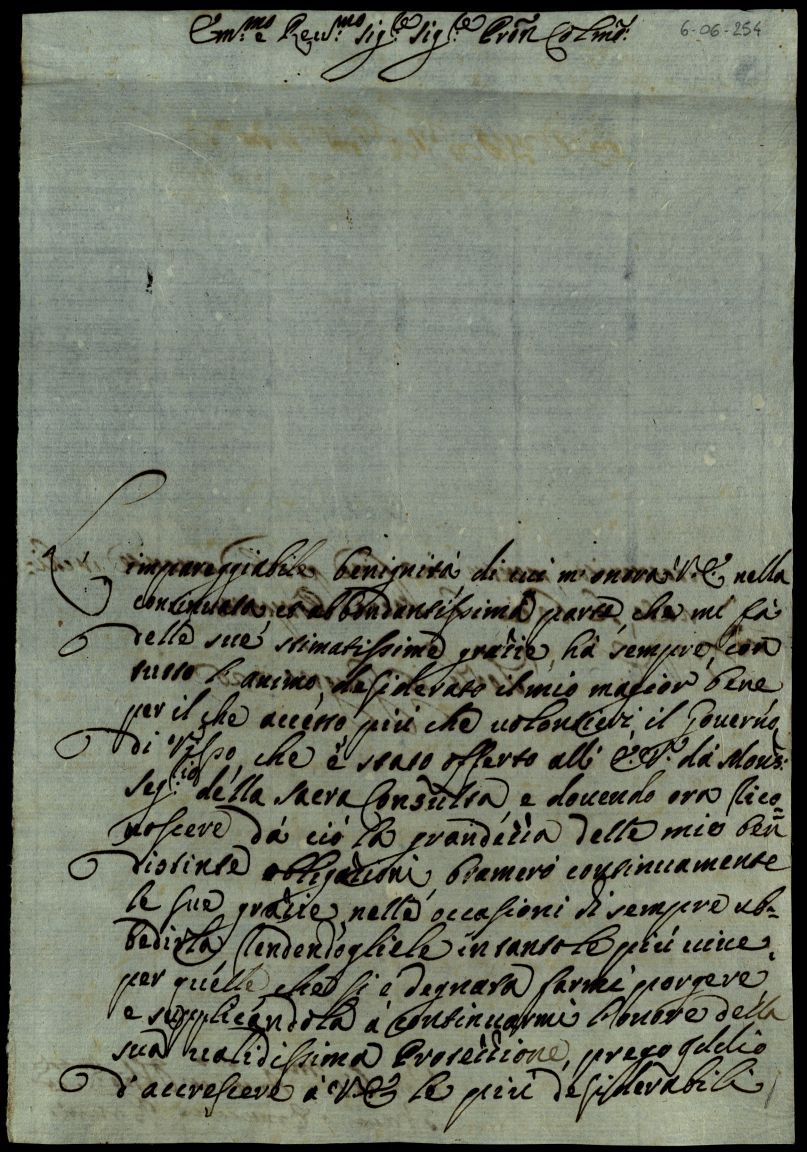 Em.mo e Reu.mo sig.re sig.re Pron Colmo:
6-06-254
L'impareggiabile benignità di cui m'onora V.E. nella
continuata, et abbondantissima parte, che mi fà
delle sue stimatissime gratie, hà sempre, con
tutto l'animo, desiderato il mio maggior bene
per il che accetto più che uolontieri il Gouerno
di Visso, che è stato offerto all' E.V. dà Mons:
Seg.rio della Sacra Consulta, e douendo ora rico=
noscere dà ciò la grandezza delle mie ben
distinte obligationi, bramerò continuamente
le sue gratie, nelle occasioni di sempre ub=
bedirla, rendendogliele in tanto le più uiue,
per quelle che si è degnata farmi porgere,
e supplicandola à continuarmi l'onore della
sua ualidissima Protettione, prego Iddio
d'accrescere à V.E. le più desiderabili